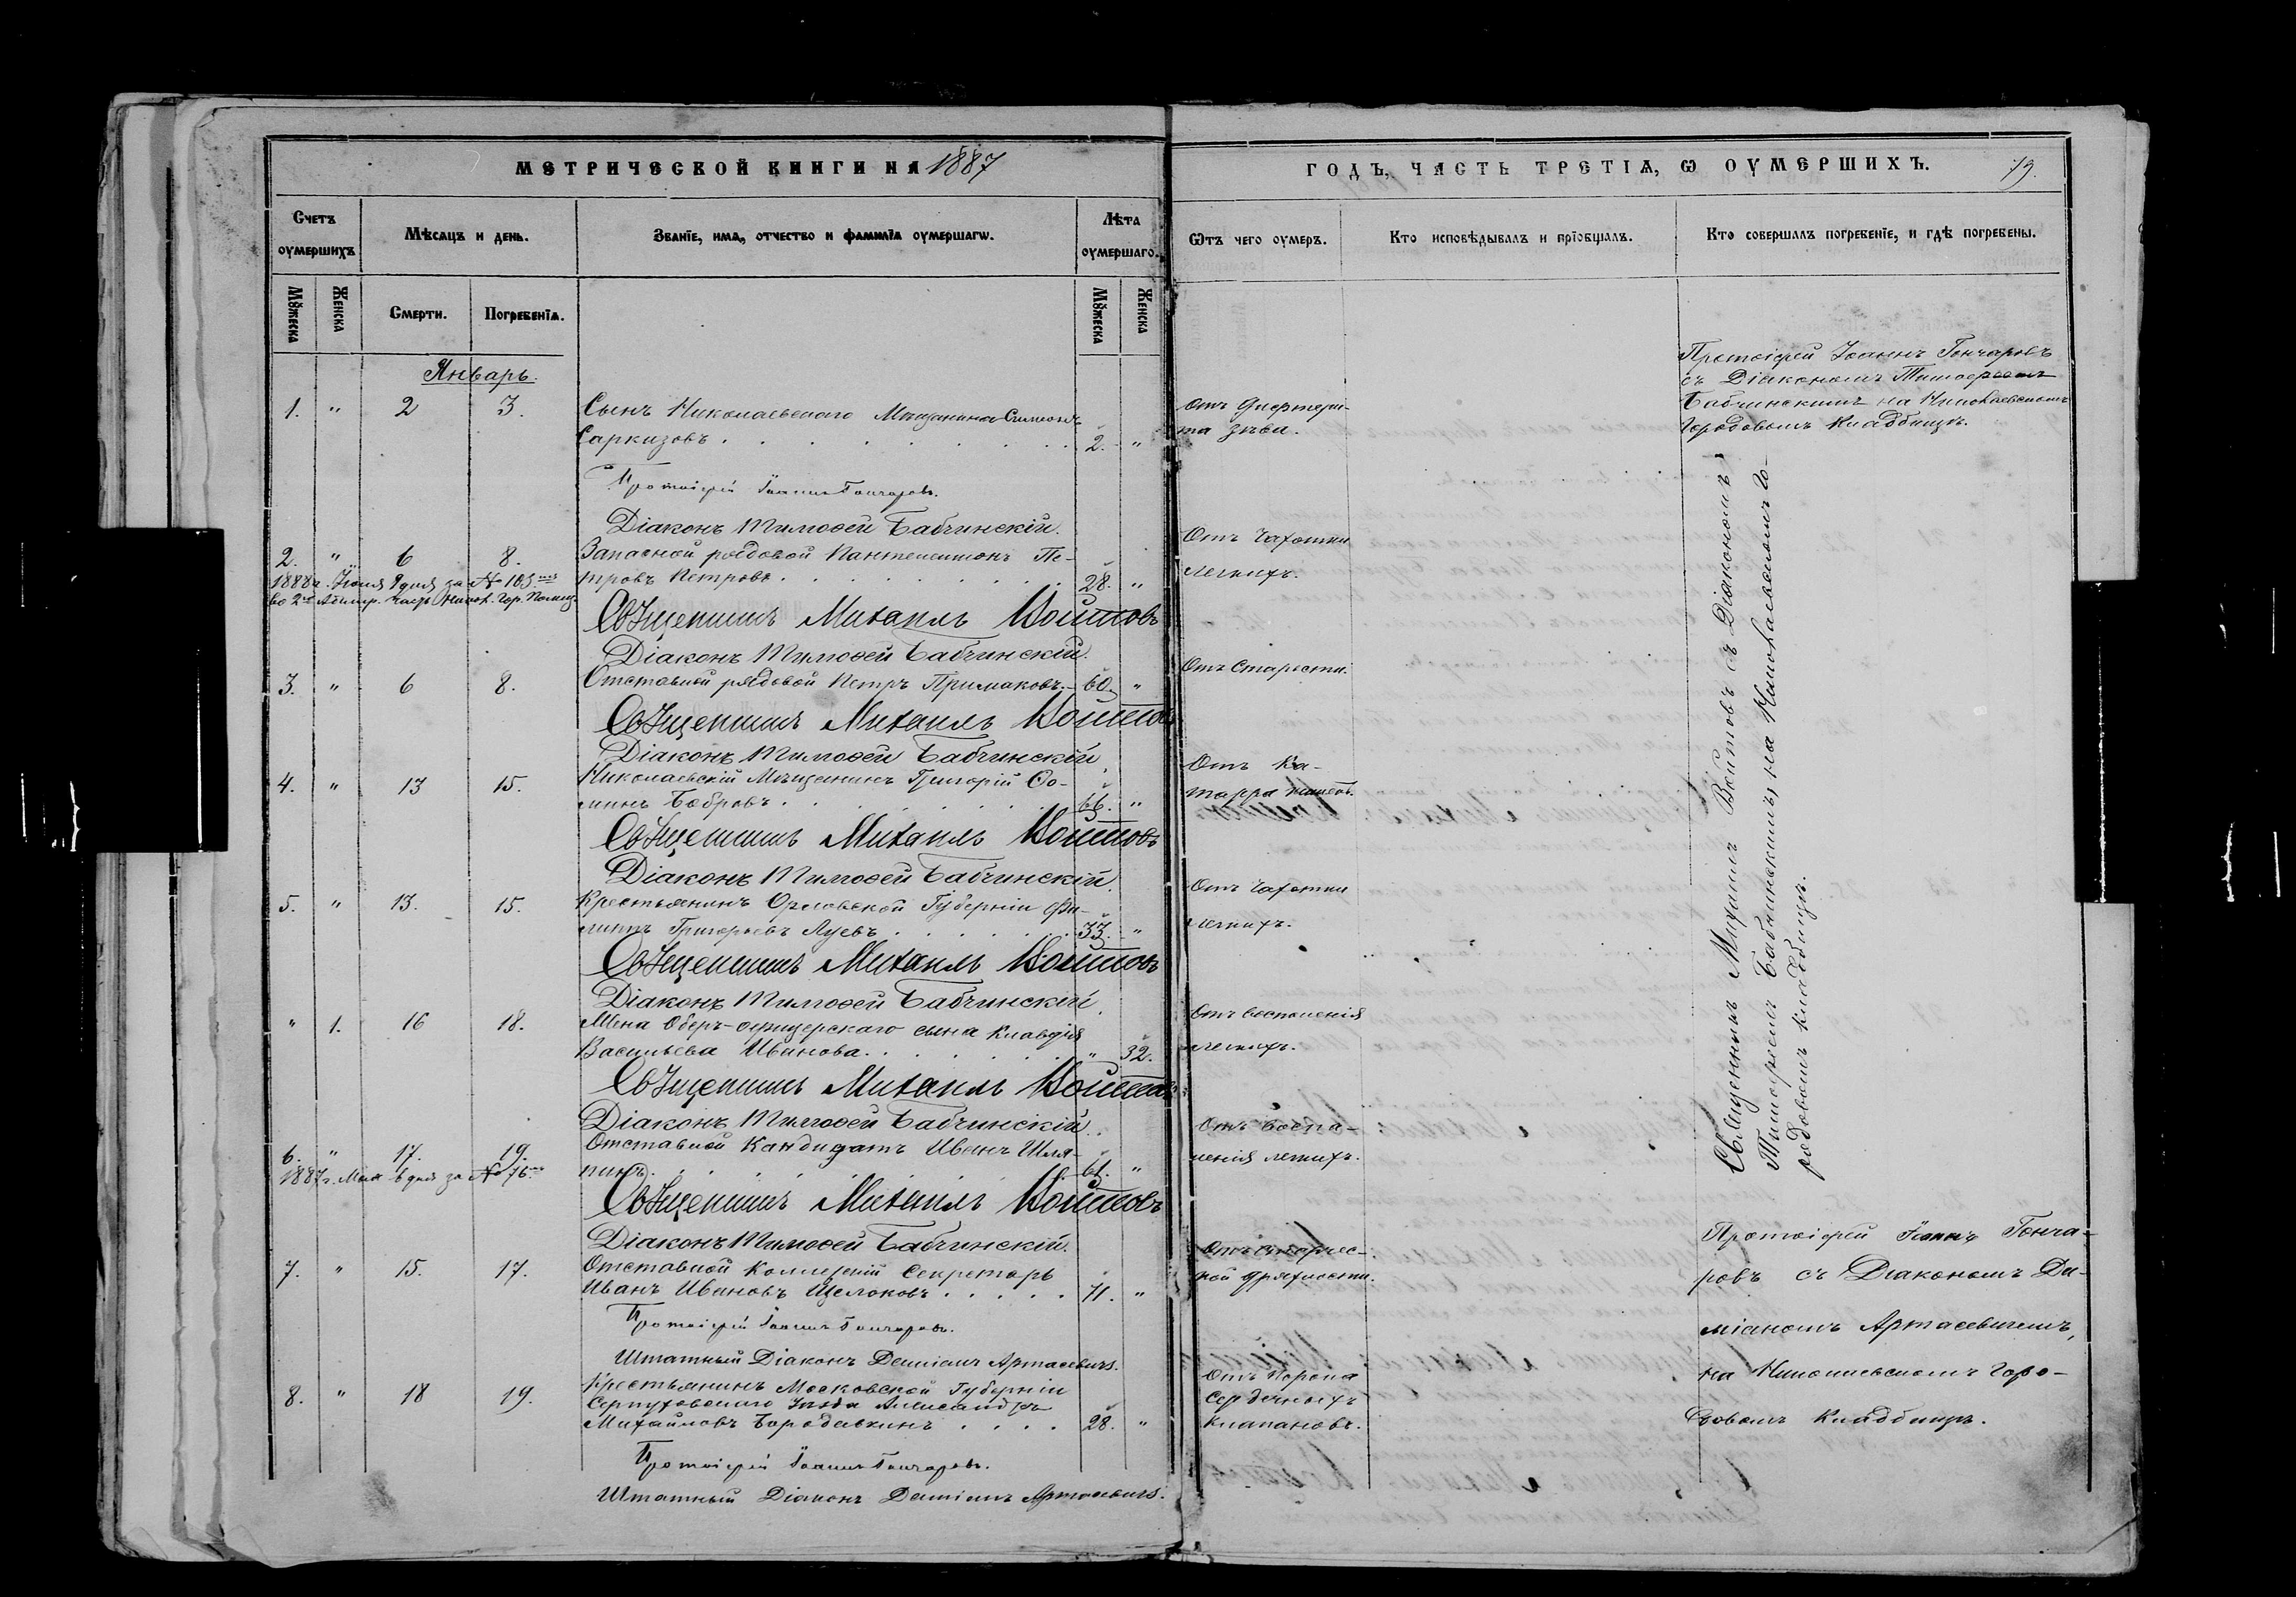 МЕТРИЧЕСКОЙ КНИГИ НА 1887
ГОДЪ, ЧАСТЬ ТРЕТІѦ, Ѡ ОУМЕРШИХЪ.
79.
Счетъ оумершихъ
Мѣсяцъ и день.
Званіе, имѧ, отчество и фамиліѧ оумершагѡ.
Лѣта оумершаго.
Ѿтъ чего оумеръ.
Кто исповѣдывалъ и пріобщалъ.
Кто совершалъ погребеніе, и гдѣ погребены.
Мꙋжеска
Женска
Смерти.
Погребеніѧ.
Мꙋжеска
Женска
Январь.
1. " 2 3. Сынъ Николаевскаго Мѣщанина Симонъ
Саркизовъ . . . . . . . 2. "
Отъ Дифтери-
та зѣва.
Протоіерей Іоаннъ Гончаровъ
съ Діакономъ Тимоѳеемъ
Бабчинскимъ на Николаевскомъ
Городовомъ Кладбищѣ.
Протоіерей Іоаннъ Гончаровъ.
Діаконъ Тимоѳей Бабчинскій.
2. " 6 8. Запасной рядовой Пантелеимонъ Пе-
1888 г. Іюня 9 дня за № 103
тровъ Петровъ . . . . . . 28. "
Отъ Чахотки
легкихъ.
Священникъ Михаилъ Войтовъ
Діаконъ Тимоѳей Бабчинскій.
3. " 6 8. Отставной рядовой Петръ Примаковъ. 60. "
Отъ Старости.
Священникъ Михаилъ Войтовъ
Діаконъ Тимоѳей Бабчинскій
4. " 13 15. Николаевскій Мѣщанинъ Григорій Ѳо-
минъ Бобровъ . . . . . . 66. "
Отъ Ка-
тарра кишекъ.
Священникъ Михаилъ Войтовъ
Діаконъ Тимоѳей Бабчинскій.
5. " 13. 15. Крестьянинъ Орловской Губерніи Фи-
липпъ Григорьевъ Луевъ . . . . . 33. "
Отъ Чахотки
легкихъ.
Священникъ Михаилъ Войтовъ
Діаконъ Тимоѳей Бабчинскій.
" 1. 16 18. Жена Оберъ-офицерскаго сына Клавдія
Васильева Иванова . . . . . . " 32.
Отъ воспаленія
легкихъ.
Священникъ Михаилъ Войтовъ
Діаконъ Тимоѳей Бабчинскій.
6. " 17. 19. Отставной Кандидатъ Иванъ Шля-
1887 г. Мая 6 дня за № 76
пинъ. . . . . . . . 61. "
Отъ воспа-
ленія легкихъ.
Священникъ Михаилъ Войтовъ
Діаконъ Тимоѳей Бабчинскій.
Священникъ Михаилъ Войтовъ съ Діакономъ
Тимоѳеемъ Бабчинскимъ, на Николаевскомъ Го-
родовомъ кладбищѣ.
7. " 15. 17. Отставной Коллежскій Секретарь
Иванъ Ивановъ Щелоковъ . . . . . 71. "
Отъ старчес-
кой дряхлости.
Протоіерей Іоаннъ Гончаровъ.
Штатный Діаконъ Даміанъ Артасевичъ.
8. " 18 19. Крестьянинъ Московской Губерніи
Серпуховскаго Уѣзда Александръ
Михайловъ Бородавкинъ . . . . 28. "
Отъ Порока
сердечныхъ
клапановъ.
Протоіерей Іоаннъ Гонча-
ровъ съ Діакономъ Да-
міаномъ Артасевичемъ,
на Николаевскомъ Горо-
довомъ Кладбищѣ.
Протоіерей Іоаннъ Гончаровъ.
Штатный Діаконъ Даміанъ Артасевичъ.